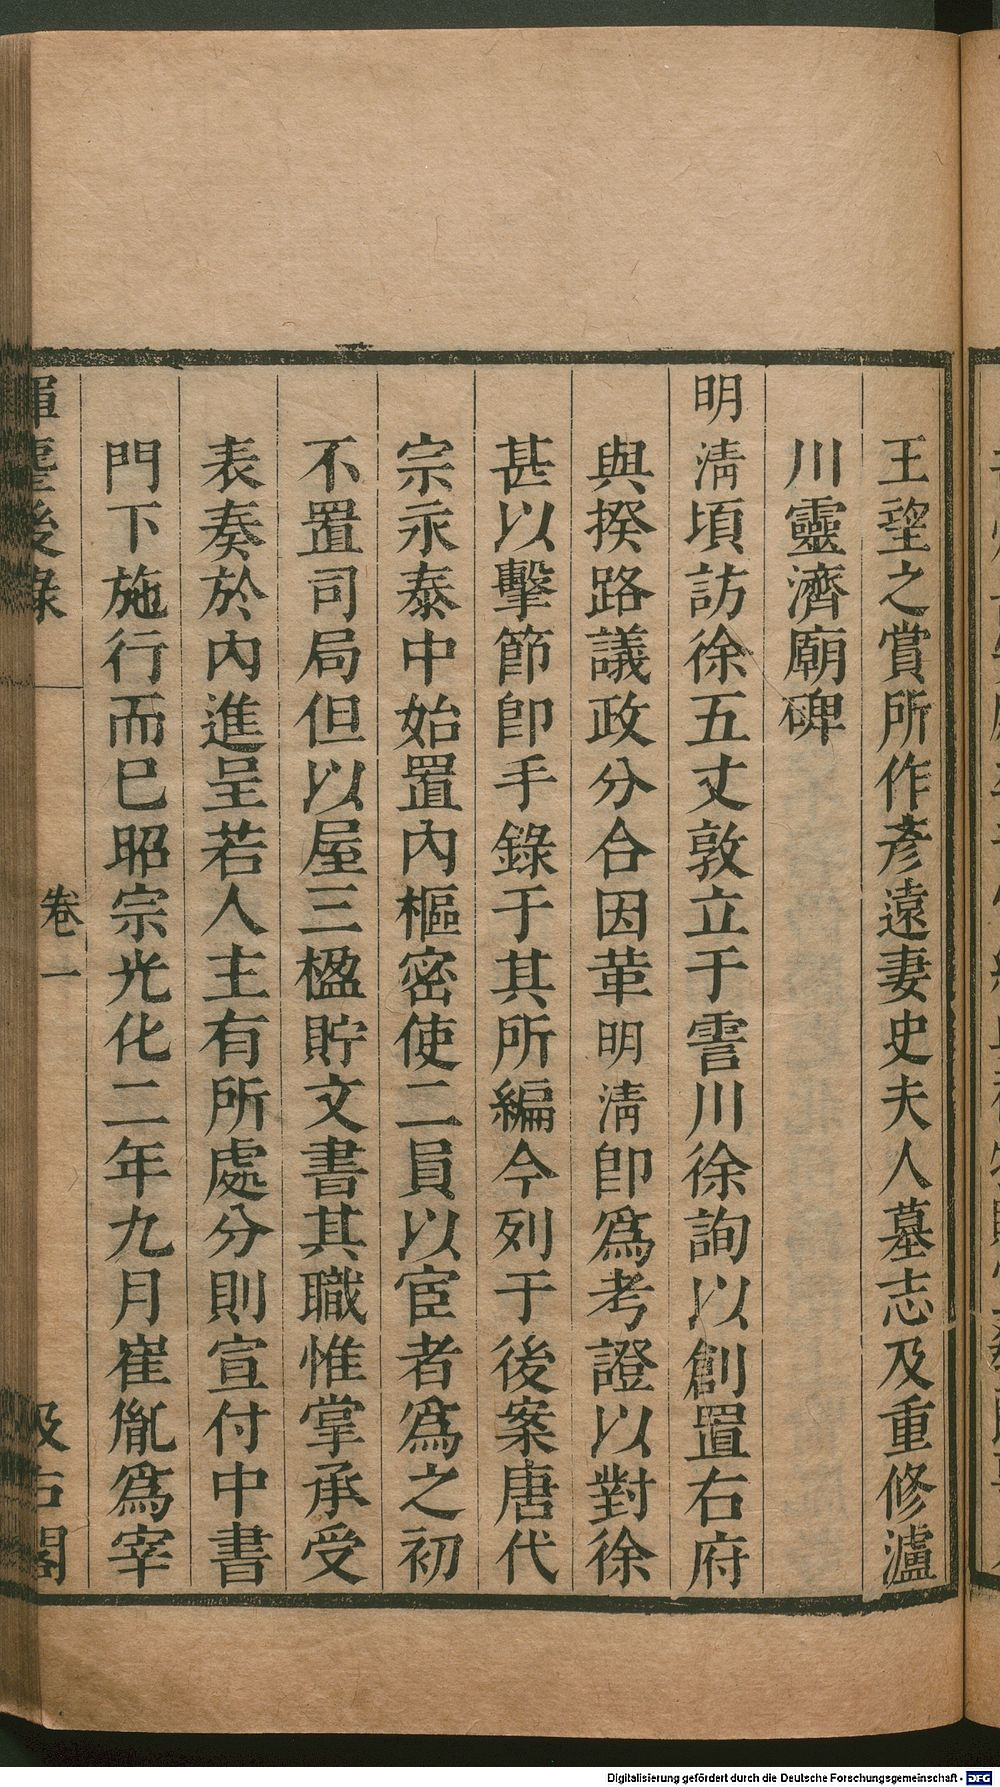 王望之賞所作彥遠妻史夫人墓志及重修瀘
川靈濟廟碑
明清頃訪徐五丈敦立于霅川徐詢以創置右府
與揆路議政分合因革明清卽爲考證以對徐
甚以擊節卽手錄于其所編今列于後案唐代
宗永泰中始置內樞密使二員以宦者爲之初
不置司局但以屋三楹貯文書其職惟掌承受
表奏於內進呈若人主有所處分則宣付中書
門下施行而巳昭宗光化二年九月崔胤爲宰
揮麈後錄 卷一 汲古閣
Digitalisierung gefördert durch die Deutsche Forschungsgemeinschaft - DFG